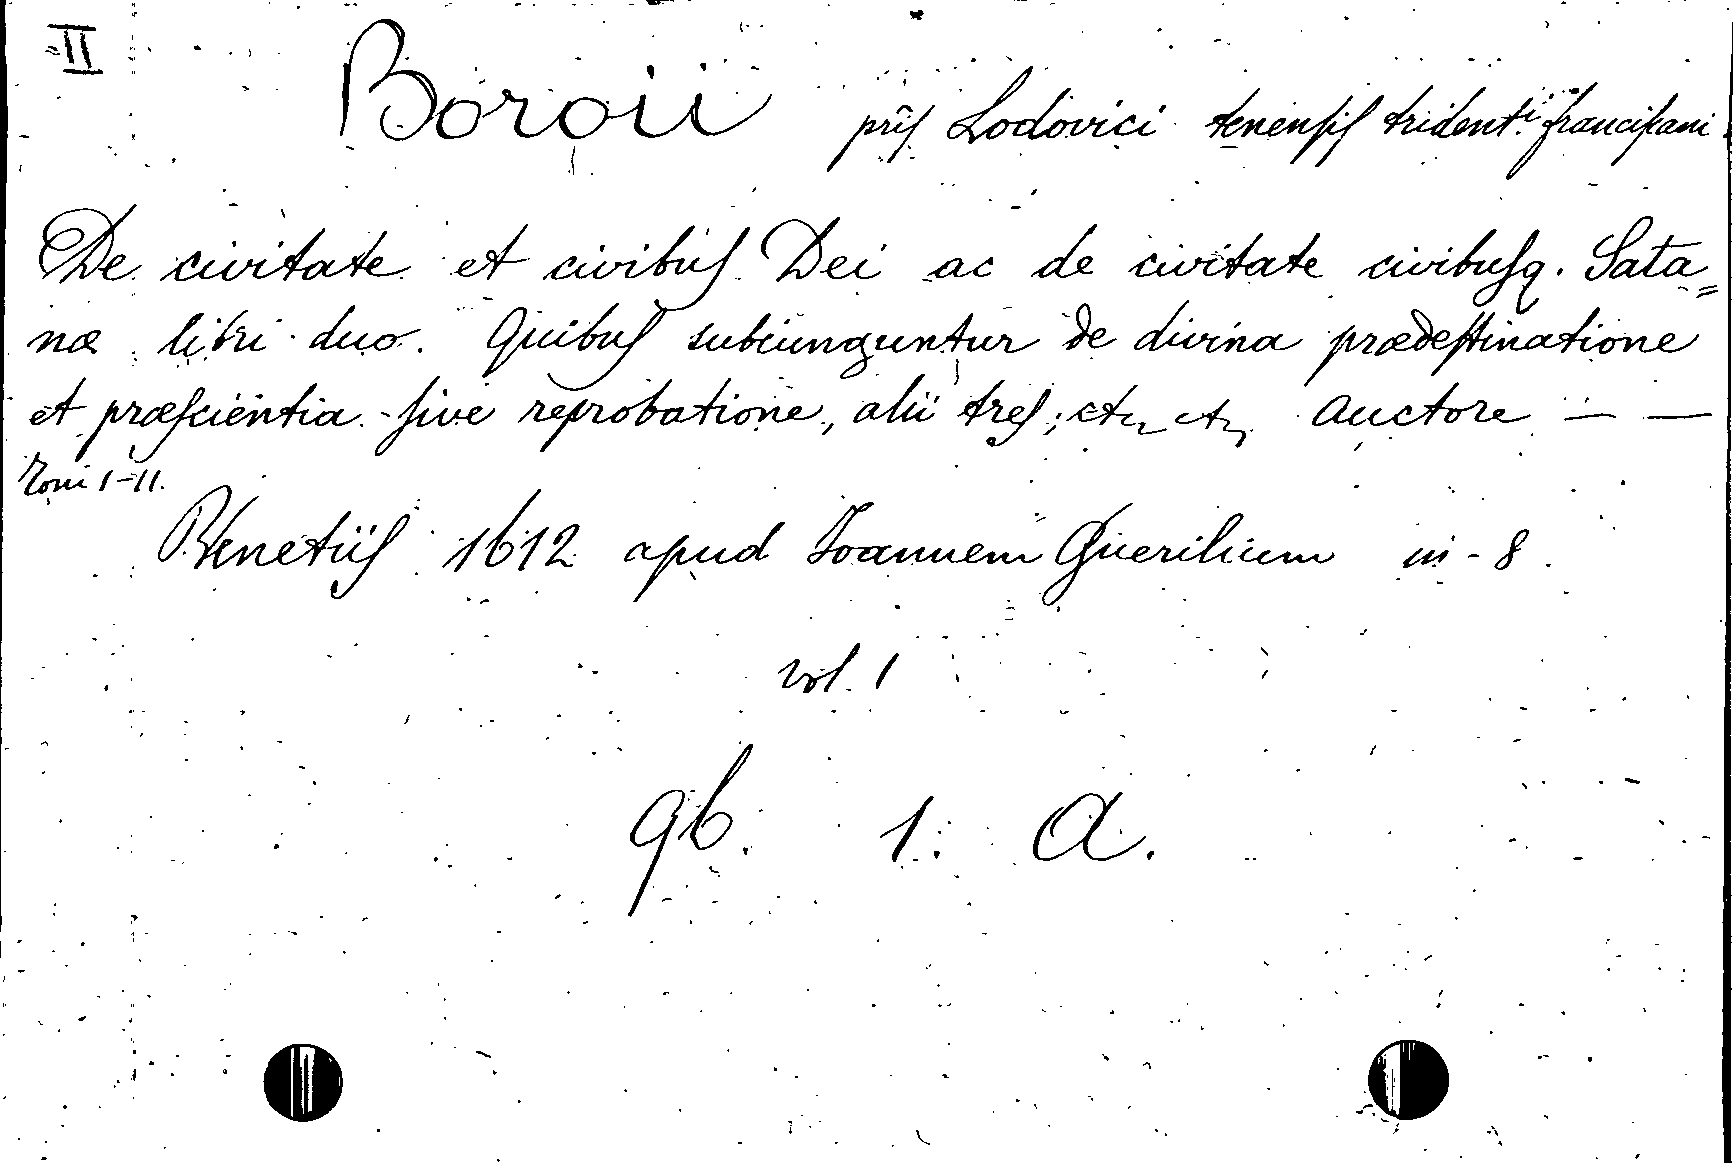 II
Boroii prîs Lodovici tenensis tridenti. franciscani
De civitate et civibus Dei ac de civitate civibusq. Sata=
næ libri duo. Quibus subiunguntur de divina prædestinatione
et præscientia sive reprobatione, alii tres; etc etc Auctore — —
Tomi I-II.
Venetiis 1612 apud Ioannem Guerilium in-8.
vol. 1
qb. 1. a.